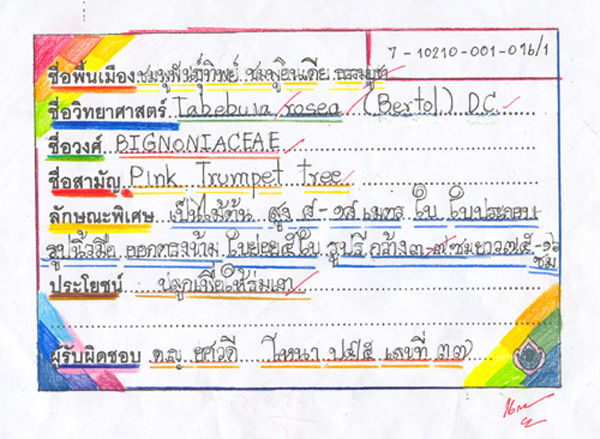 7-10210-001-016/1
ชื่อพื้นเมือง ชมพูพันธุ์ทิพย์ ชมพูอินเดีย ธรรมบูชา
ชื่อวิทยาศาสตร์ Tabebuia rosea (Bertol.) D.C.
ชื่อวงศ์ BIGNONIACEAE
ชื่อสามัญ Pink Trumpet tree
ลักษณะพิเศษ เป็นไม้ต้น สูง ๘-๑๕ เมตร ใบ ใบประกอบ
รูปนิ้วมือ ออกตรงข้าม ใบย่อย ๕ ใบ รูปรี กว้าง ๓-๗ ซม ยาว ๗๕-๑๖
ซม
ประโยชน์ ปลูกเพื่อให้ร่มเงา
ผู้รับผิดชอบ ด.ญ. ยศวดี ไหนา ป๔/๕ เลขที่ ๓๗